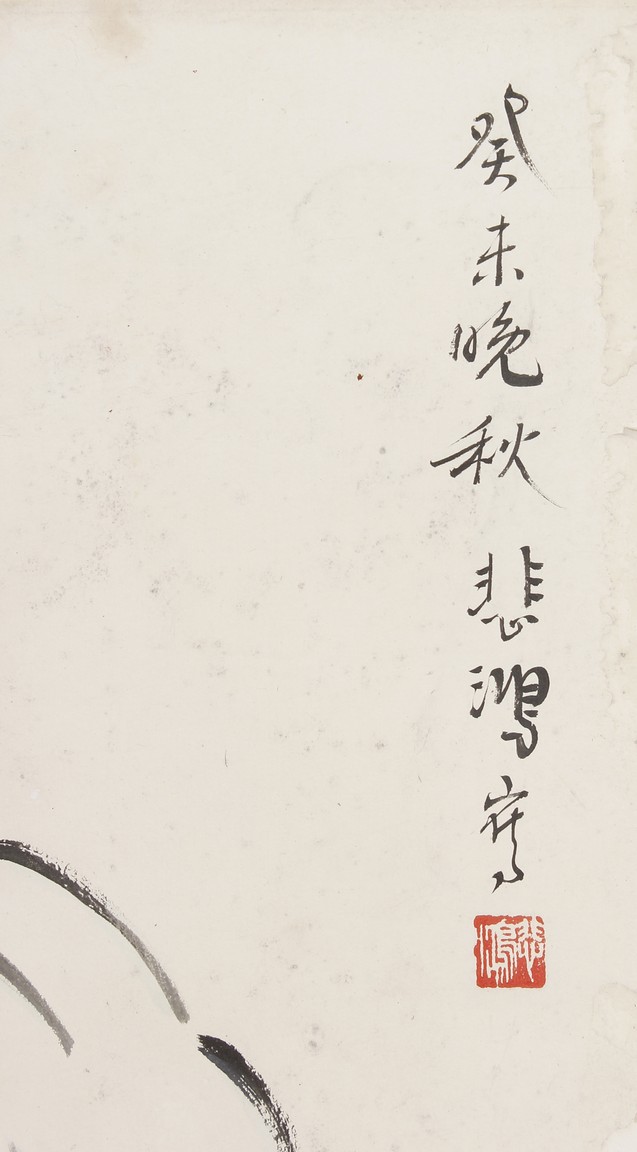 癸未晚秋 悲鴻寫
悲鴻